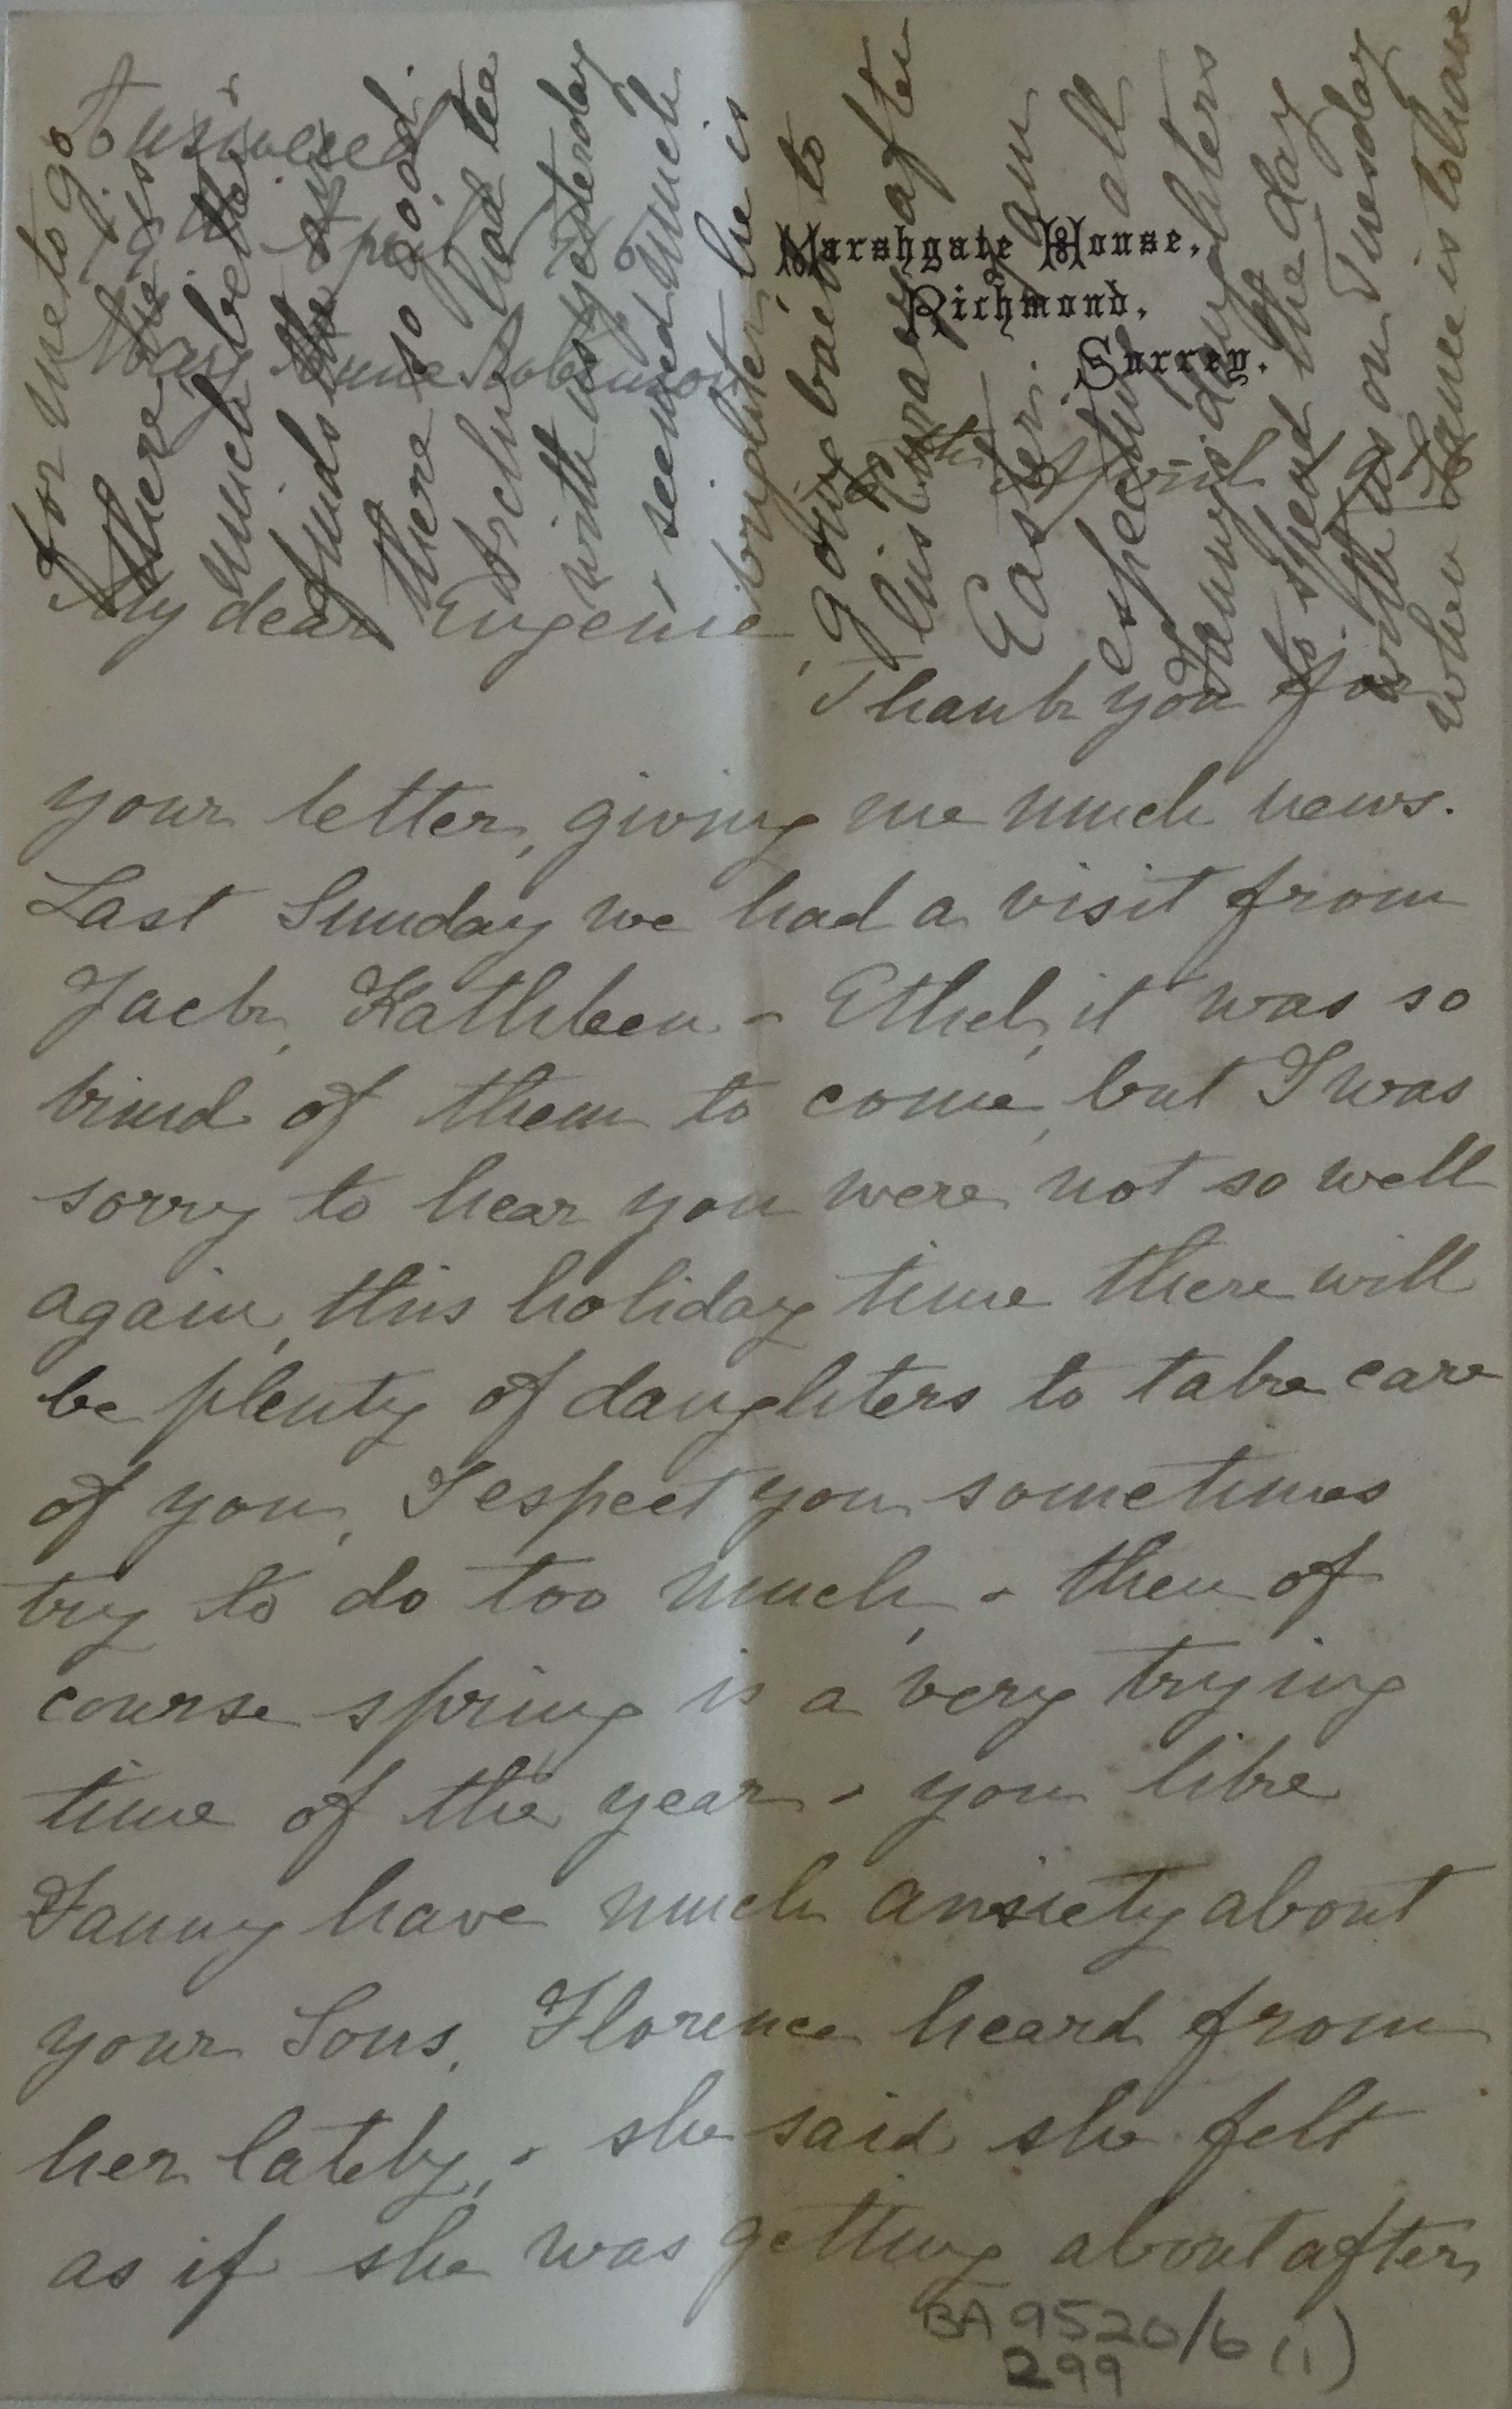 Answered
19th April
Mary Anne Robinson
Marshgate House,
Richmond,
Surrey.
8th April
My dear Eugenie,
Thank you for
your letter, giving me much news.
Last Sunday we had a visit from
Jack, Kathleen & Ethel, it was so
kind of them to come, but I was
sorry to hear you were not so well
again, this holiday time there will
be plenty of daughters to take care
of you, I espect you sometimes
try to do too much, & then of
course spring is a very trying
time of the year & you like
Fanny have much anxiety about
your Sons. Florence heard from
her lately, & she said she felt
as if she was getting about after
for me to go
there, he is
much better &
finds the air
there so good.
Archie had tea
with us yesterday
& seemed much
brighter, he is
going back to
his Curacy after
Easter. I am
expecting all
Fanny's daughters
to spend the day
with us on Tuesday
when Lance is to have
BA 9520/6 (1)
299